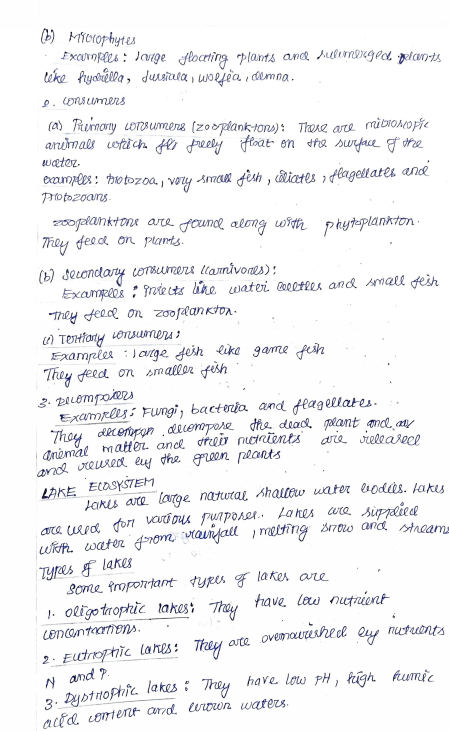 (b) Microphytes
Examples: large floating plants and submerged plants
like hydrilla, Jussiaea, wolfia, demna.
2. consumers
(a) Primary consumers (zooplanktons): These are microscopic
animals which fly freely float on the surface of the
water.
examples: protozoa, very small fish, ciliates, flagellates and
protozoans.
zooplanktons are found along with phytoplankton.
They feed on plants.
(b) Secondary consumers (carnivores):
Examples: insects like water beetles and small fish
They feed on zooplankton.
(c) Tertiary consumers:
Examples: large fish like game fish
They feed on smaller fish
3. Decomposers
Examples: Fungi, bacteria and flagellates.
They decompose the dead plant and
animal matter and their nutrients are released
and reused by the green plants
LAKE ECOSYSTEM
Lakes are large natural shallow water bodies. Lakes
are used for various purposes. Lakes are supplied
with water from rainfall, melting snow and streams
Types of lakes
Some important types of lakes are
1. oligotrophic lakes: They have low nutrient
concentrations.
2. Eutrophic lakes: They are overnourished by nutrients
N and P.
3. Dystrophic lakes: They have low pH, high humic
acid content and brown waters.